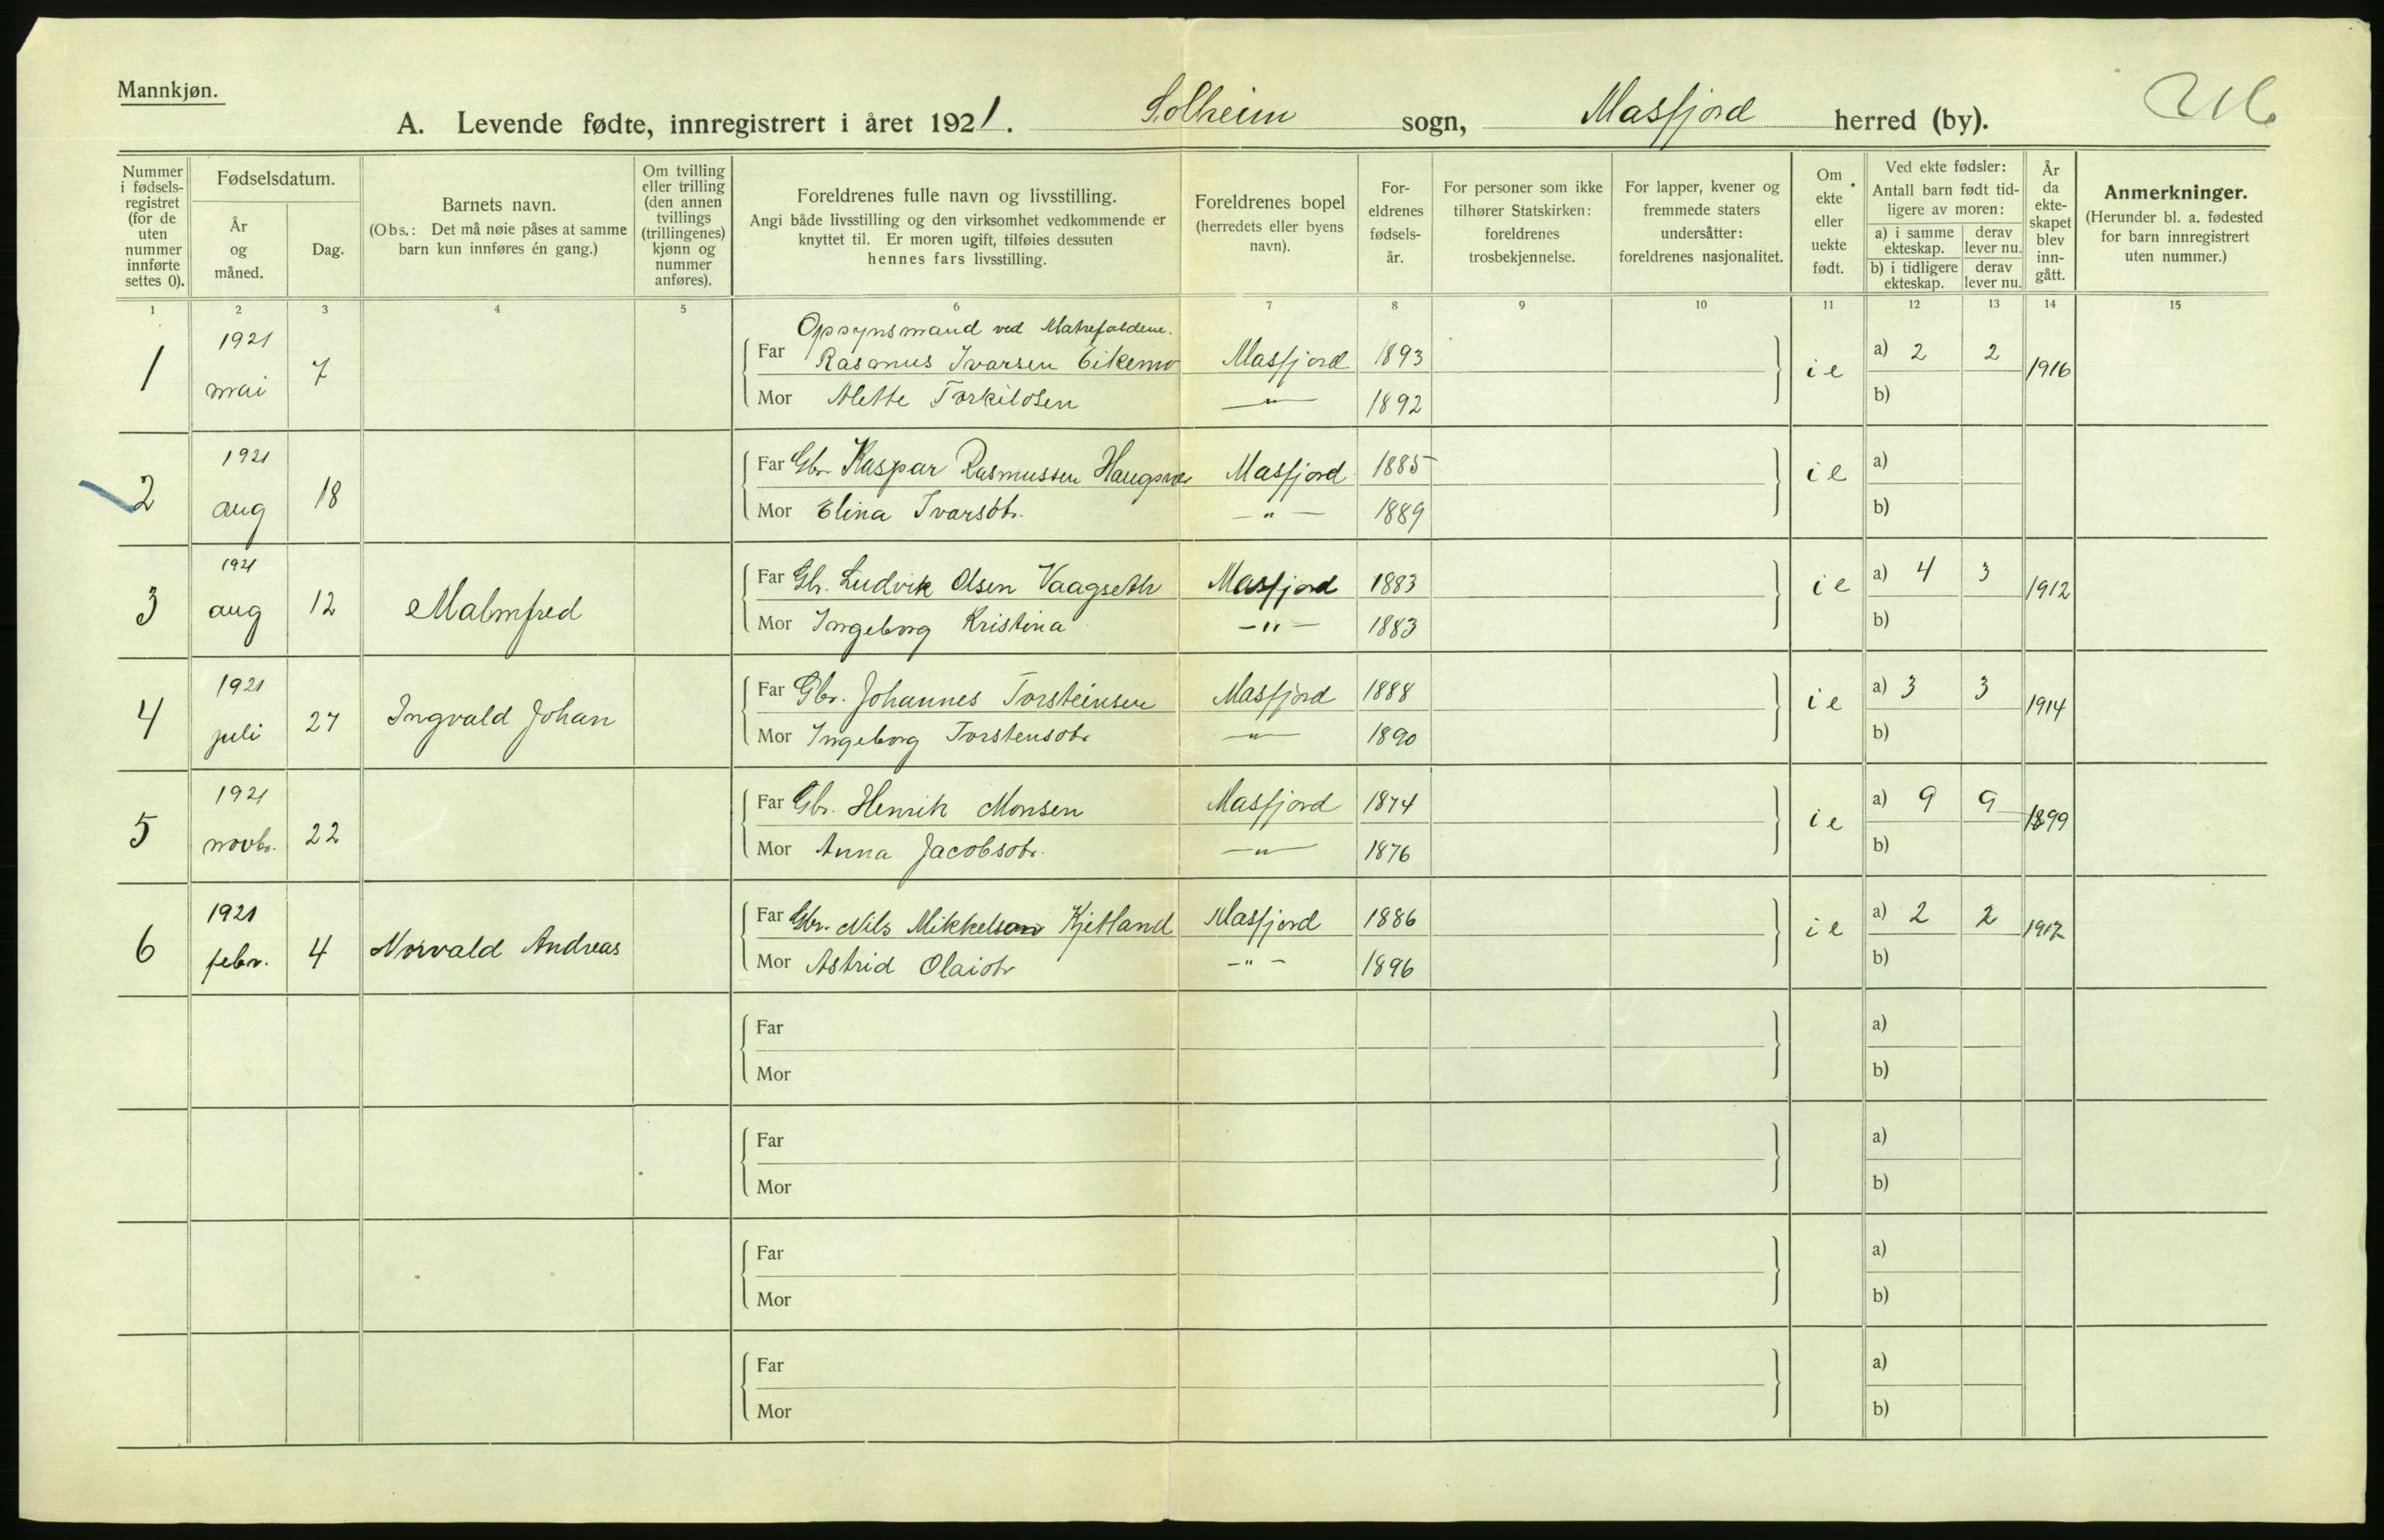 Mannkjøn.
A. Levende fødte, innregistrert i året 1921. Solheim sogn, Masfjord herred (by).
Nummer i fødselsregistret (for de uten nummer innførte settes 0).
Fødselsdatum.
År og måned.
Dag.
Barnets navn.
(Obs.: Det må nøie påses at samme barn kun innføres én gang.)
Om tvilling eller trilling (den annen tvillings (trillingenes) kjønn og nummer anføres).
Foreldrenes fulle navn og livsstilling.
Angi både livsstilling og den virksomhet vedkommende er knyttet til. Er moren ugift, tilføies dessuten hennes fars livsstilling.
Foreldrenes bopel (herredets eller byens navn).
Foreldrenes fødselsår.
For personer som ikke tilhører Statskirken: foreldrenes trosbekjennelse.
For lapper, kvener og fremmede staters undersåtter: foreldrenes nasjonalitet.
Om ekte eller uekte født.
Ved ekte fødsler:
Antall barn født tidligere av moren:
a) i samme ekteskap.
derav lever nu.
b) i tidligere ekteskap.
derav lever nu.
År da ekteskapet blev inngått.
Anmerkninger.
(Herunder bl. a. fødested for barn innregistrert uten nummer.)
1 2 3 4 5 6 7 8 9 10 11 12 13 14 15
Opsynsmand ved
1 1921 mai 7 Far Rasmus Ivarsen Eikemo Masfjord 1893 ie a) 2 2 1916
Mor Alette Torkildsen — " — 1892 b)
2 1921 aug 18 Far Gbr. Kaspar Rasmussen Masfjord 1885 ie a)
Mor Elina Ivarsdtr. — " — 1889 b)
3 1921 aug 12 Malmfred Far Gbr. Ludvik Olsen Vaagseth Masfjord 1883 ie a) 4 3 1912
Mor Ingeborg Kristina — " — 1883 b)
4 1921 juli 27 Ingvald Johan Far Gbr. Johannes Torsteinsen Masfjord 1888 ie a) 3 3 1914
Mor Ingeborg Torstensdtr — " — 1890 b)
5 1921 novbr. 22 Far Gbr. Henrik Monsen Masfjord 1874 ie a) 9 9 1899
Mor Anna Jacobsdtr. — " — 1876 b)
6 1921 febr. 4 Norvald Andreas Far Gbr. Nils Mikkelsen Kjetland Masfjord 1886 ie a) 2 2 1917
Mor Astrid Olaidtr — " — 1896 b)
Far a)
Mor b)
Far a)
Mor b)
Far a)
Mor b)
Far a)
Mor b)